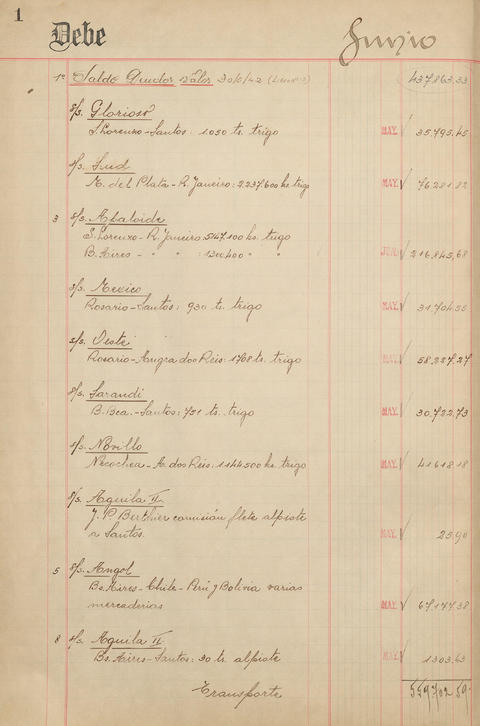 1
Debe
Junio
1º Saldo Deudor Valor 30/6/42 437.863,33
s/s. Glorioso
S. Lorenzo-Santos: 1.050 ts. trigo MAY. 35.795,45
s/s. Sud
M. del Plata-R. Janeiro: 2.237.600 ks. trigo MAY. 76.281,82
3 s/s. Abaloide
S. Lorenzo-R. Janeiro: 5147.100 ks. trigo
B. Aires - " " : 1300400 " " JUN. 216.845,68
s/s. Mexico
Rosario-Santos: 930 ts. trigo MAY. 31.704,55
s/s. Oeste
Rosario-Angra dos Reis: 1708 ts. trigo MAY. 58.227,27
s/s. Sarandi
B. Bca.-Santos: 751 ts. trigo MAY. 30.722,73
s/s. Novillo
Necochea-A. dos Reis: 1144500 ks. trigo MAY. 41618,18
s/s. Aguila II
J. P. Berthier comisión flete alpiste
a Santos. MAY. 25,90
5 s/s. Angol
Bs. Aires-Chile-Perú y Bolivia varias
mercaderias MAY. 67.147,38
8 s/s. Aguila II
Bs. Aires-Santos: 30 ts. alpiste MAY. 1303,63
Transporte